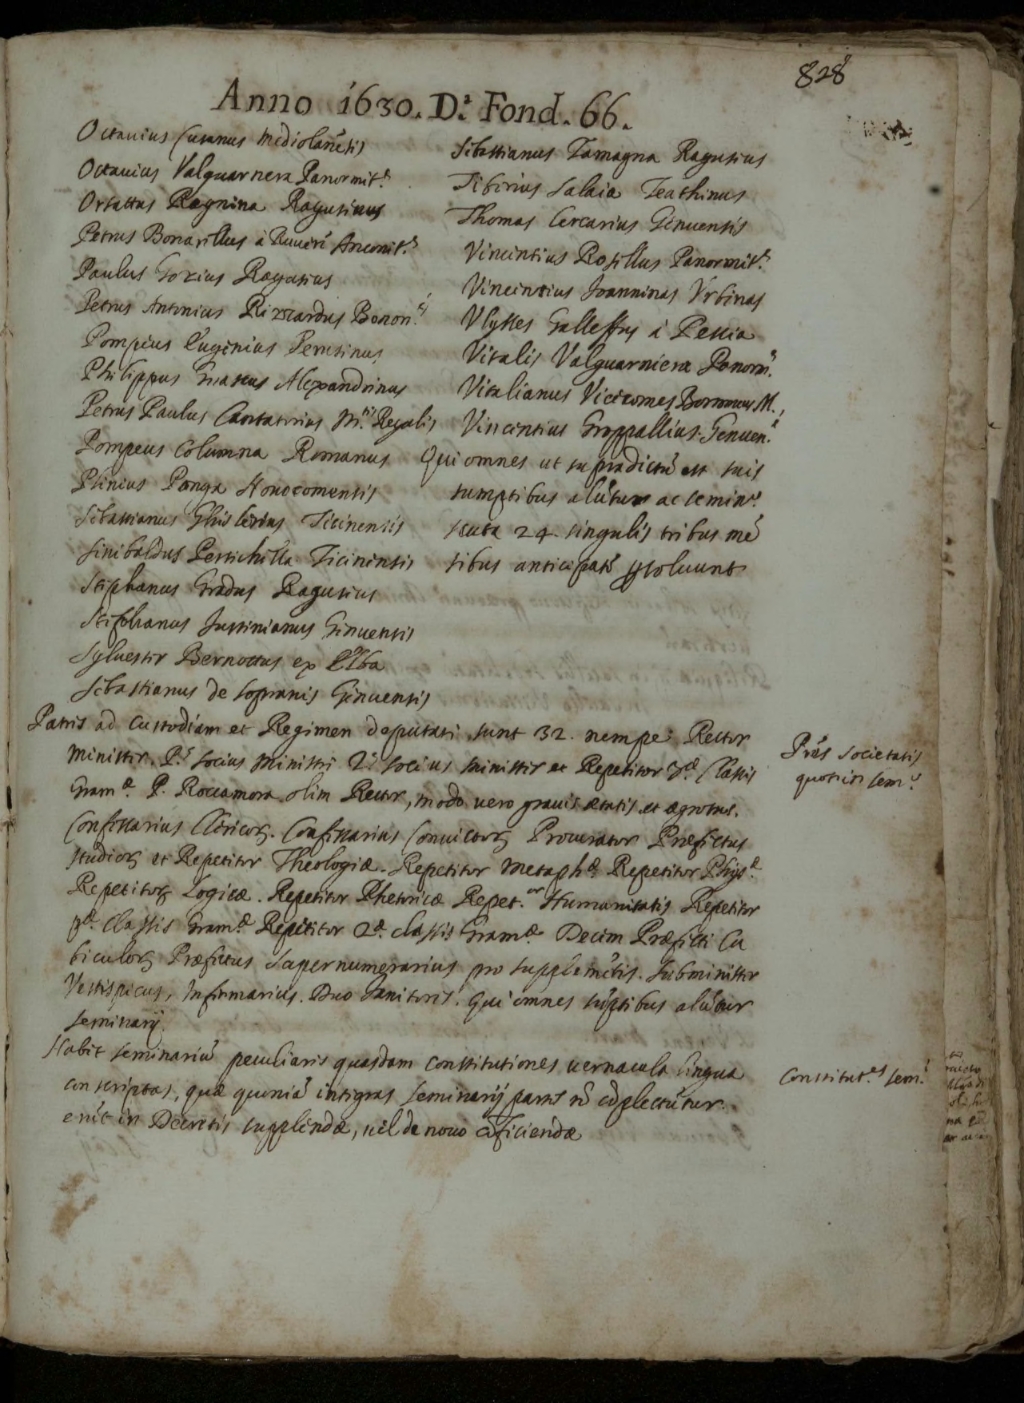 828
Anno 1630. D.ª Fond. 66.
Octauius Cusanus Mediolanẽsis
Octauius Valguarnera Panormit.s
Orsattus Ragnina Ragusinus
Petrus Bonarillus à Ruueri Anconit.s
Paulus Gozius Ragusius
Petrus Antonius Rizzardus Bonon.s
Pompeius Eugenius Perusinus
Philippus Guascus Alexandrinus
Petrus Paulus Cantatorius M.tis Regalis
Pompeus Columna Romanus
Plinius Ponga Nouocomensis
Sebastianus Ghislerius Ticinensis
Sinibaldus Pertichilla Ticinensis
Stephanus Gradus Ragusius
Stephanus Justinianus Genuensis
Syluester Bernottus ex Alba
Sebastianus de Sopranis Genuensis
Sebastianus Tamagna Ragusius
Tiberius Salaia Teathinus
Thomas Cercarius Genuensis
Vincentius Rosillus Panormit.s
Vincentius Joanninus Vrbinas
Vlysses Galleffus à Pessia
Vitalis Valguarniera Panorm.s
Vitalianus Vicecomes Borromeus M.s
Vincentius Groppallius Genuen.s
Qui omnes ut supradictũ est suis
sumptibus alũtur ac semin.o
scuta 24. singulis tribus mẽ
sibus anticipatẽ persoluunt
Patres ad Custodiam et Regimen deputati sunt 32. nempe: Rector
Minister. P.s socius Ministri 2.s socius Minister et Repetitor 3.æ Classis
Gram.æ P. Roccamora olim Rector, modo uero grauis ætatis et ægrotus.
Confessarius Clericorꝝ. Confessarius Conuictorꝝ Procurator Præfectus
studiorꝝ et Repetitor Theologiæ. Repetitor Metaph.æ Repetitor Phys.æ
Repetitorꝝ Logicæ. Repetitor Rhetoricæ Repet.or Humanitatis Repetitor
p.æ Classis Gram.æ Repetitor 2.æ classis Gram.æ Decem Præfecti Cu
biculorꝝ Præfectus supernumerarius pro supplemẽtis. Subminister
Vestispicus, Infirmarius. Duo Ianitores. Qui omnes sũptibus alũtur
seminarij.
Habet seminariũ peculiares quasdam constitutiones uernacula lingua
conscriptas, quæ quoniã integras seminarij partes nõ cõplectũtur
erũt in Decretis supplendæ, uel de nouo cõficiendæ
Pr̃es Societatis
quot in sem.o
Constitut.es sem.i